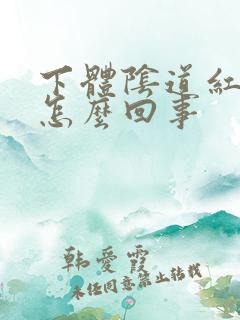 下體陰道紅
怎麼回事
韩愛霞
未经同意禁止转载